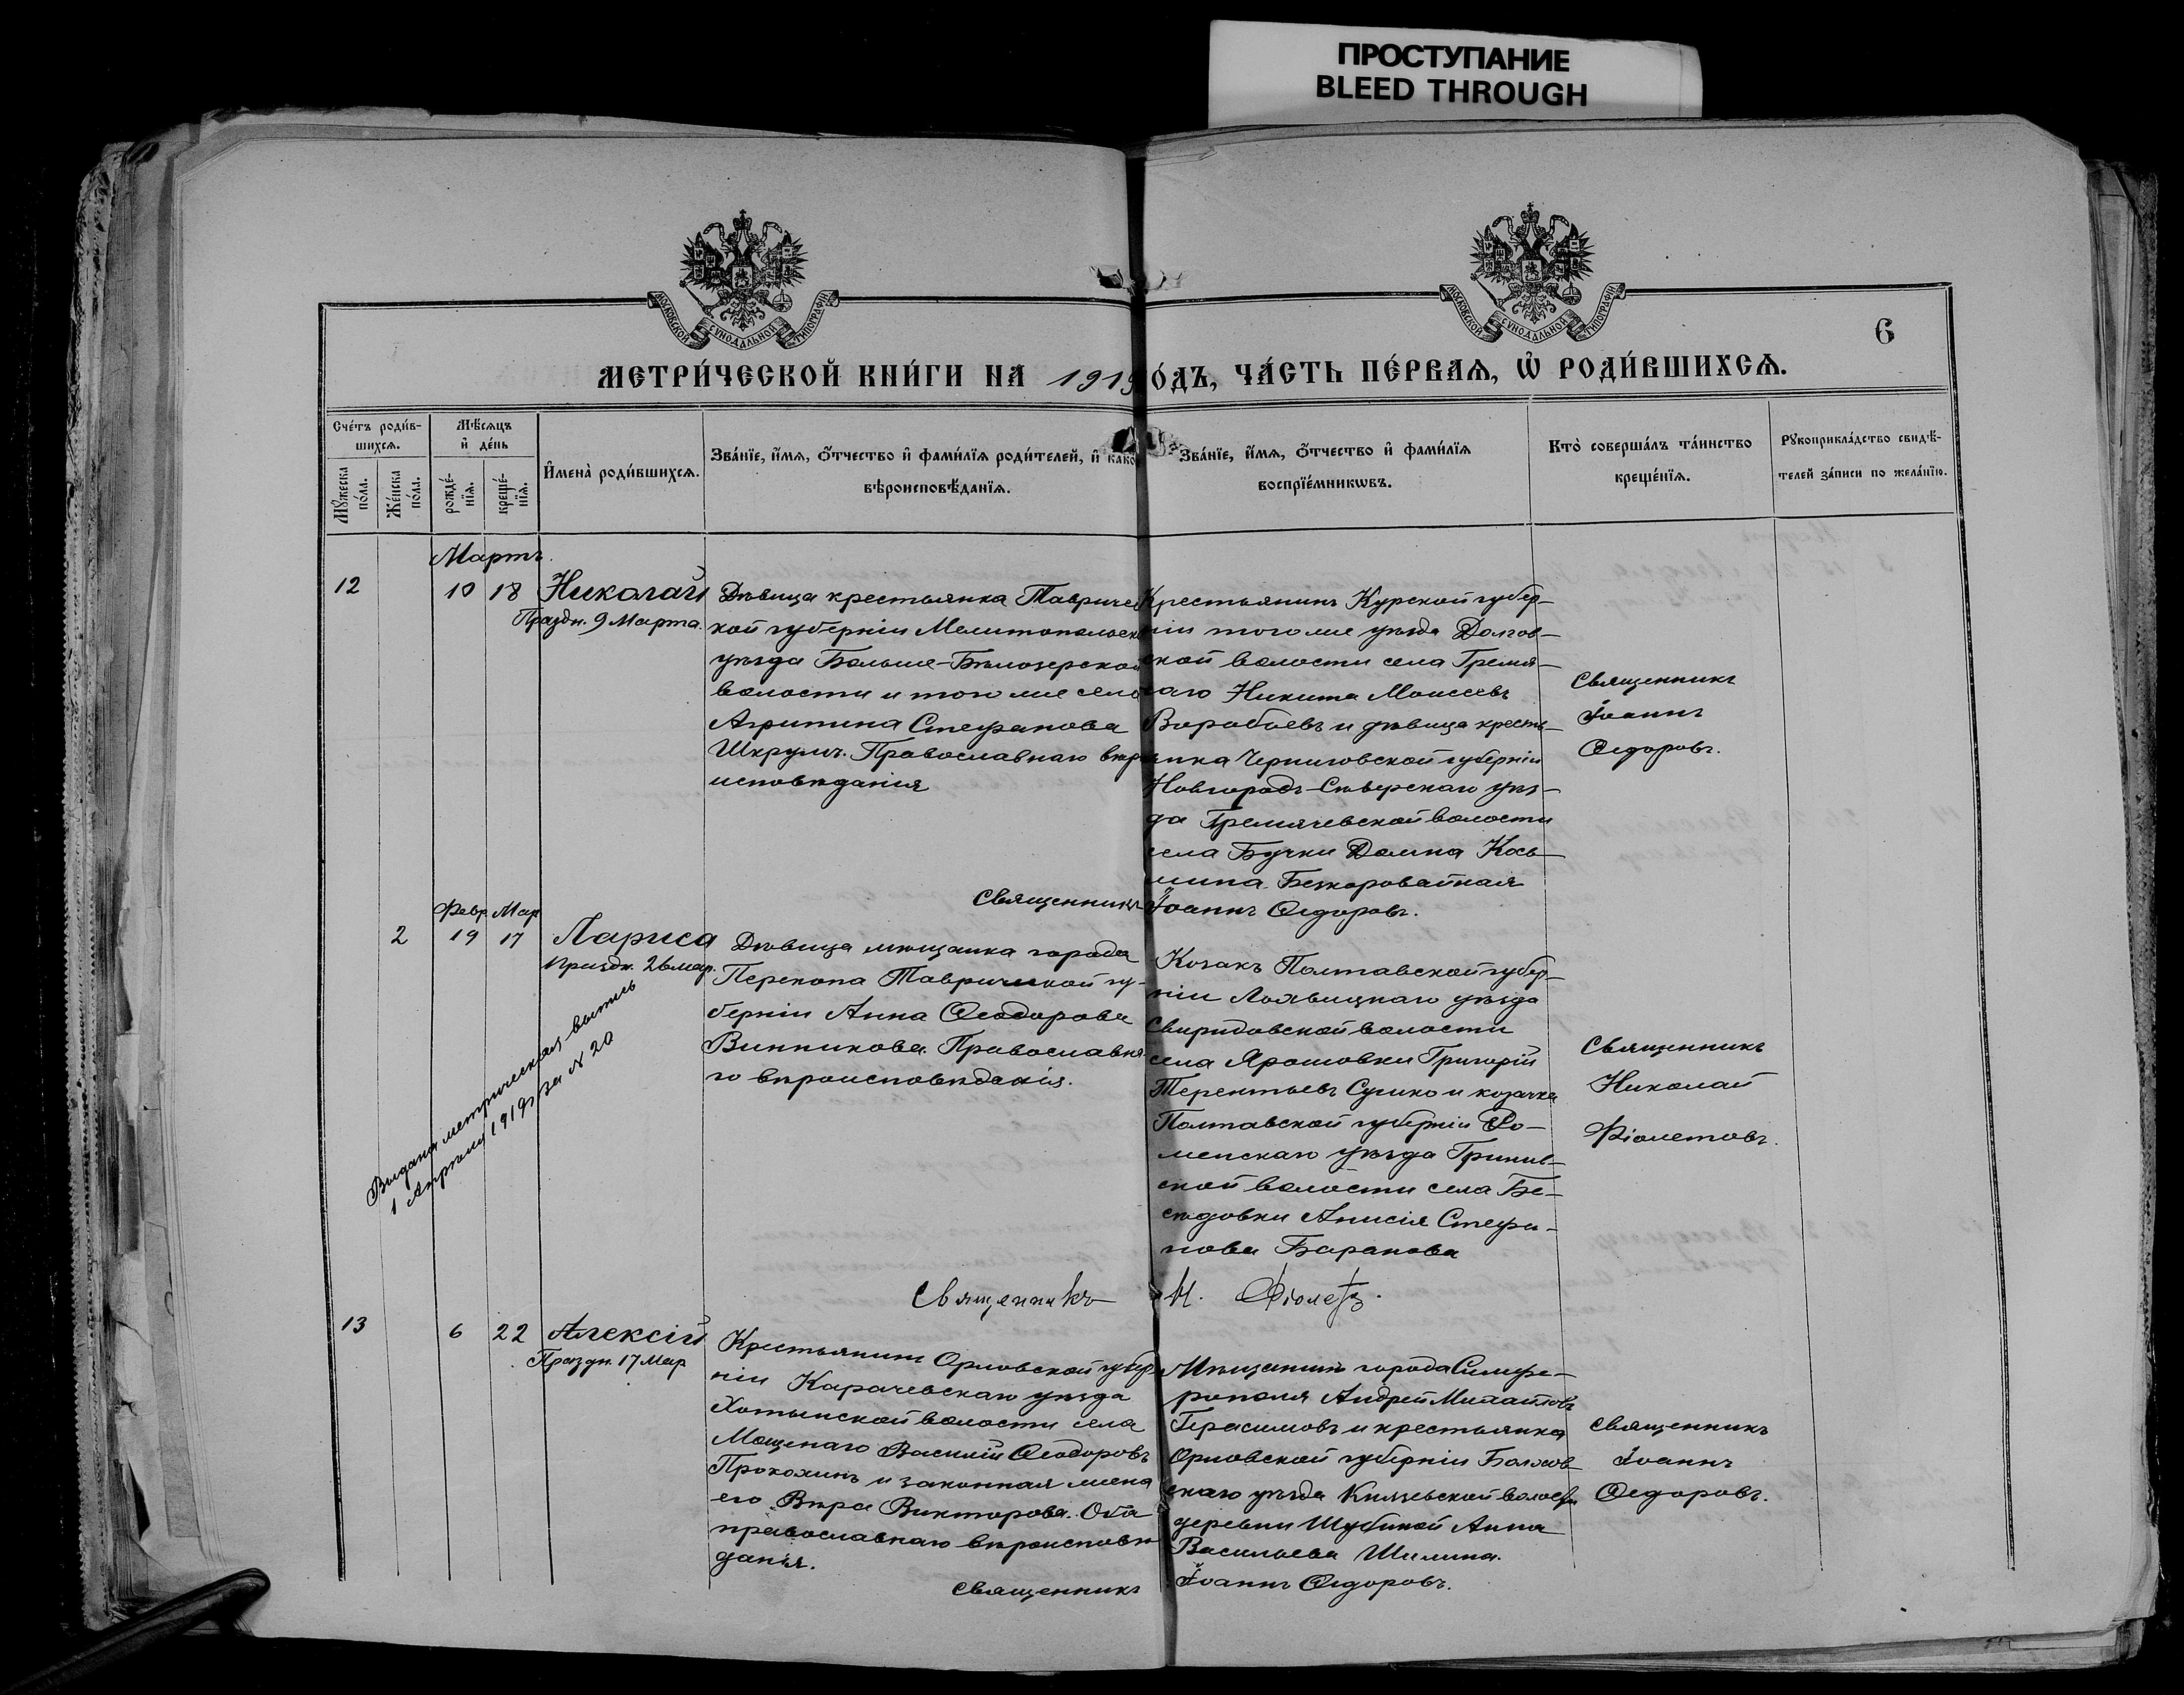 ПРОСТУПАНИЕ
BLEED THROUGH
МОСКОВСКОЙ СѴНОДАЛЬНОЙ ТИПОГРАФІИ
МОСКОВСКОЙ СѴНОДАЛЬНОЙ ТИПОГРАФІИ
6
МЕТРИ́ЧЕСКОЙ КНИ́ГИ НА 1919 О́ДЪ, ЧА́СТЬ ПЕ́РВАѦ, Ѡ҆ РОДИ́ВШИХСѦ.
Сче́тъ роди́в-
шихсѧ.
Мꙋ́жеска по́ла.
Же́нска по́ла.
Мѣ́сѧцъ
и҆ де́нь
рожде́-
нїѧ.
креще́-
нїѧ.
И҆мена̀ роди́вшихсѧ.
Зва́нїе, и҆́мѧ, ѻ҆́тчество и҆ фами́лїѧ роди́телей, и҆ како
вѣроисповѣ́данїѧ.
Зва́нїе, и҆́мѧ, ѻ҆́тчество и҆ фами́лїѧ
воспрїе́мникѡвъ.
Кто̀ соверша́лъ та́инство
креще́нїѧ.
Рꙋкоприкла́дство свидѣ́-
телей за́писи по жела́нїю.
Мартъ.
12 10 18 Николай
Праздн. 9 Марта.
Дѣвица крестьянка Тавричес
кой губерніи Мелитопольско
уѣзда Больше-Бѣлозерской
волости и того же села
Агрипина Стефанова
Шкрумъ. Православнаго вѣро
исповѣданія
Крестьянинъ Курской губер-
ніи того же уѣзда Долгов-
ской волости села Гремя-
чаго Никита Моисеевъ
Воробьевъ и дѣвица кресть-
янка Черниговской губерніи
Новгородъ-Сѣверскаго уѣз-
да Гремячевской волости
села Бучки Домна Кось-
мина Безкоровайная
Священникъ
Іоаннъ
Ѳедоровъ.
Священникъ Іоаннъ Ѳедоровъ.
Февр. Мар
2 19 17 Лариса
Праздн. 26 мар.
Выдана метрическая выпись
1 Апрѣля 1919 г. за № 20
Дѣвица мѣщанка города
Перекопа Таврической гу-
берніи Анна Ѳеодорова
Винникова. Православна-
го вѣроисповѣданія.
Козакъ Полтавской губер-
ніи Лохвицкаго уѣзда
Свиридовской волости
села Ярошовки Григорій
Терентьевъ Сушко и козачка
Полтавской губерніи Ро-
менскаго уѣзда Гринив-
ской волости села Бе-
сѣдовки Анисія Стефа-
нова Баранова
Священникъ
Николай
Фіолетовъ.
Священникъ Н. Фіолетовъ.
13 6 22 Алексій
Праздн. 17 Мар
Крестьянинъ Орловской губер
ніи Карачевскаго уѣзда
Хотынской волости села
Мощенаго Василій Ѳеодоровъ
Прокохинъ и законная жена
его Вѣра Викторова. Оба
православнаго вѣроисповѣ
данія.
Мѣщанинъ города Симфе-
рополя Андрей Михайловъ
Герасимовъ и крестьянка
Орловской губерніи Болхов-
скаго уѣзда Князевской волости
деревни Шубиной Анна
Васильева Шилина.
Священникъ
Іоаннъ
Ѳедоровъ.
Священникъ Іоаннъ Ѳедоровъ.